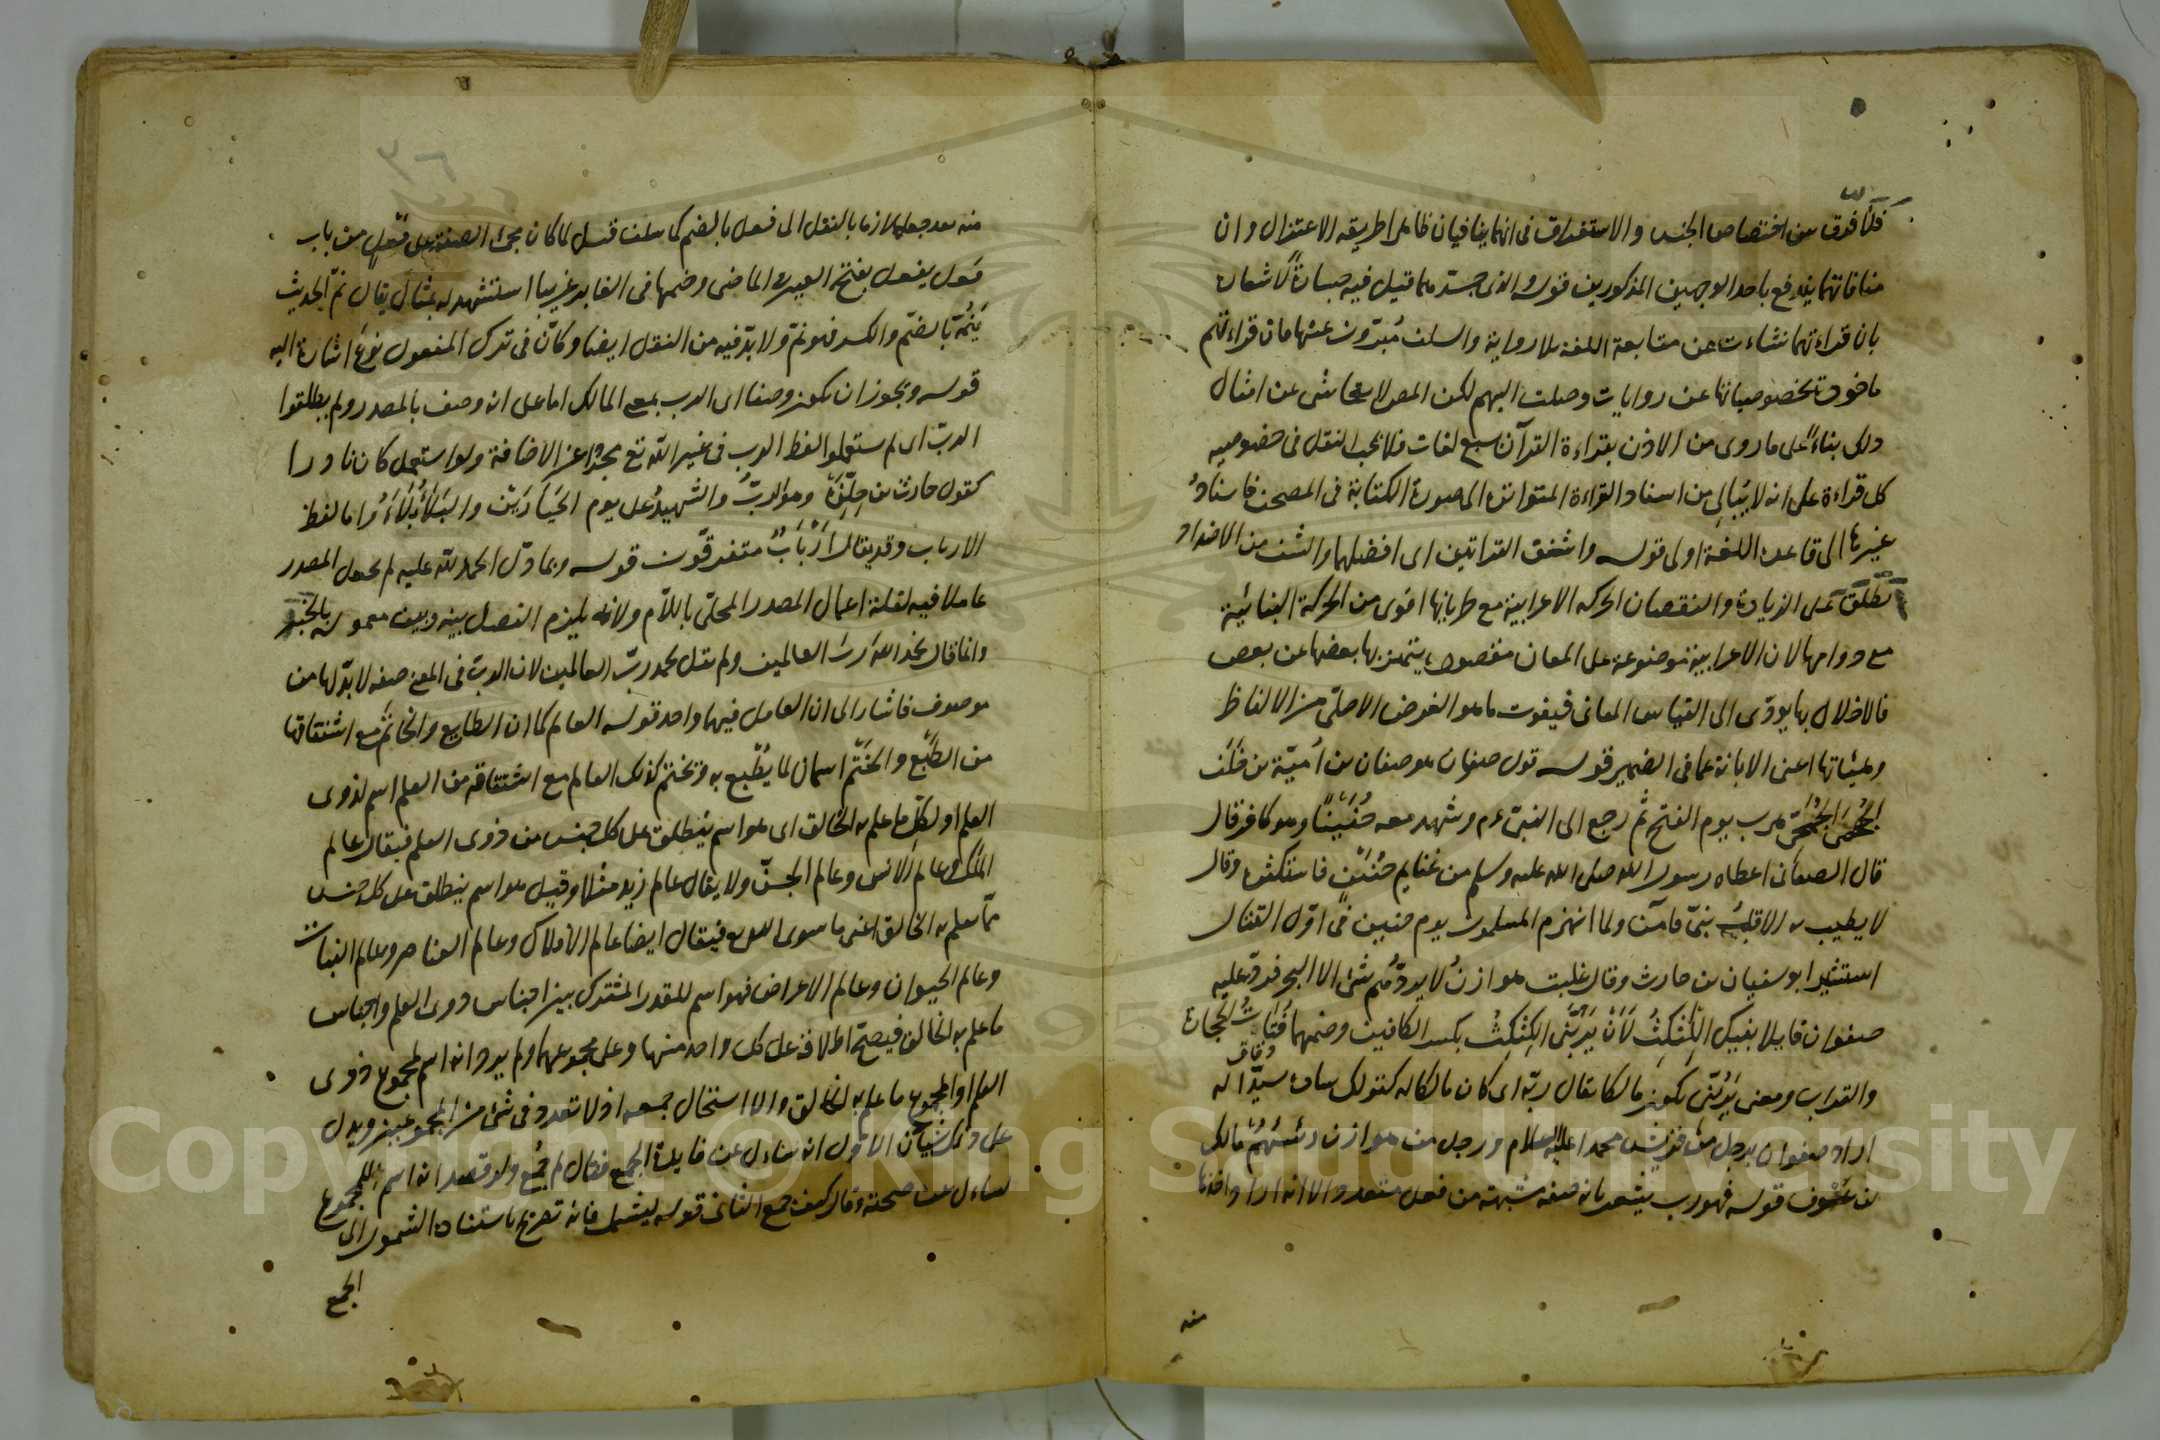 فلا فرق بين اختصاص الجنس والاستغراق في انهما ينافيان ظاهرا طريقه الاعتزال وان
منافاتهما يندفع باحد الوجهين المذكورين قوله والذي جسر مما قيل فيه جسارة لاشعاره
بان قراءتهما نشاءت عن متابعة اللغة بلا رواية والسلف مبرؤون عنها فان قراءتهم
ماخوذة بخصوصياتها عن روايات وصلت اليهم لكن المص لا يتحاشى عن امثال
ذلك بناءً على ما روى من الاذن بقراءة القرآن سبع لغات فلا يجب النقل في خصوصيه
كل قراءة على انه لا يبالي من اسناد القراءة المتواترة الى صورة الكتابة في المصحف فاسناد
غيرها الى قاعدة اللغة اولى قوله واشف القراءتين اى افضلهما والشف من الاضداد
يطلق على الزيادة والنقصان الحركه الاعرابية مع طريانها اقوى من الحركة البنائية
مع دوامها لان الاعرابية موضوعة على المعان مقصودة يتميز بها بعضها عن بعض
فالاخلال بها يودى الى التباس المعانى فيفوت ما هو الغرض الاصلى من الالفاظ
وهيئاتها اعنى الابانة عما في الضمير قوله قول صفوان هو صفوان بن امية بن خلف
الجمحى هرب يوم الفتح ثم رجع الى النبى ءم وشهد معه حنينا وهو كافر قال
قال الصفان اعطاه رسول الله صلى الله عليه وسلم من غنايم حنين فاستكثره وقال
لا يطيب به الا قلب نبى فآمن ولما انهزم المسلمون يوم حنين في اول القتال
استبشر ابو سفيان بن حارث وقال غلبت هوازن لا يردهم شئ الا البحر فرد عليه
صفوان قايلا بفيك الكثكث لان يربنى الكثكث بكسر الكافين وضمهما فتات الحجارة
دقاق
والتراب ومعنى يربنى يكون مالكا يقال ربه اى كان مالكا له كقولك ساده سيدا له
اراد صفوان برجل من قريش محمدا عليه السلام ورجل من هوازن رئيسهم مالك
بن عوف قوله فهو رب يشعر بانه صفه مشبهة من فعل متعد والا انه اراد اخذها
منه
منه بعد جعله لازما بالنقل الى فعل بالضم كما سلف قبل لما كان مجئ الصفة على فعل من باب
فعل يفعل بفتح العين في الماضى وضمها فى الغابر غريبا استشهد له بمثال يقال نم الحديث
ينمه بالضم والكسر فهو نم ولا بد فيه من النقل ايضا وكان في ترك المفعول نوع اشارة اليه
قوله ويجوز ان يكون وصفا اى الرب بمعنى المالك اما على انه وصف بالمصدر ولم يطلقوا
الرب اى لم يستعملوا لفظ الرب في غير الله تع مجردا عن الاضافة ولو استعمل كان نادرا
كقول حارث بن حلزة وهو الرب والشهيد على يوم الحيارين والبلاء بلاء واما لفظ
الارباب وقد يقال أأرباب متفرقون قوله وبما دل الحمد لله عليه لم يجعل المصدر
عاملا فيه لقلة اعمال المصدر المحلى باللام ولانه يلزم الفصل بينه وبين معموله بالخبر
وانما قال نحمد الله رب العالمين ولم يقل نحمد رب العالمين لان الرب في المعنى صفه لا بد لها من
موصوف فاشار الى ان العامل فيهما واحد قوله العالم كما ان الطابع والخاتم مع اشتقاقها
من الطبع والختم اسمان لما يطبع به ويختم كذلك العالم مع اشتقاقه من العلم اسم لذوى
العلم او لكل ما علم به الخالق اى هو اسم ينطلق على كل جنس من ذوى العلم فيقال عالم
الملك وعالم الانس وعالم الجن ولا يقال عالم زيد مثلا وقيل هو اسم ينطلق على كل جنس
مما يعلم به الخالق اعنى ما سوى الله تع فيقال ايضا عالم الافلاك وعالم العناصر وعالم النبات
وعالم الحيوان وعالم الاعراض فهو اسم للقدر المشترك بين اجناس ذوى العلم واجناس
ما علم به الخالق فيصح اطلاقه على كل واحد منها وعلى مجموعها ولم يرد انه اسم لمجموع ذوى
العلم او لمجموع ما علم به الخالق والا استحال جمعه اذ لا تعدد في شئ من المجموعين ويدل
على ذلك شيآن الاول انه ساءل عن فايدة الجمع فقال لم جمع ولو قصد انه اسم للمجموع
لساءل عن صحته وقال كيف جمع الثانى قوله ليشمل فانه تصريح باستناد الشمول الى
الجمع
Copyright © King Saud University